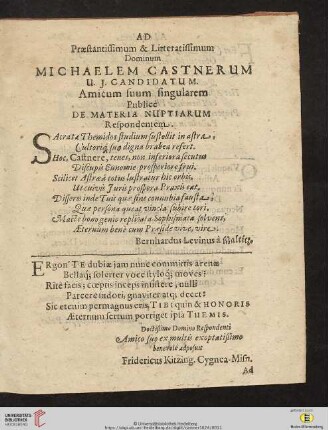 AD
Præstantissimum & Litteratissimum
Dominum
MICHAELEM CASTNERUM
U. J. CANDIDATUM.
Amicum suum singularem
Publicè
DE MATERIA NUPTIARUM
Respondentem.
SAcrata Themidos studium sustollit in astra,
Cultoriq; suo digna brabea refert.
Hoc, Castnere, tenes, non inferiora secutus
Discupis Eunomiæ prosperiore frui.
Scilicet Astræa cœtus lustratur hic orbis,
Ut cuivis Juris prospera Praxis eat,
Disseris inde Tui quæ sint connubia fausta,
Quæ persona queat vincla subire tori.
Macte bono genio replicata Sophismata solvens,
Æternum benè cum Præside vive, vire.
Bernhardus Levinus à
ERgon' TE dubiæ jam nunc committis arenæ
Bellaq; solerter voce styloq; moves?
Ritè facis; cœptis inceps insistere, nulli
Parcere indotci, gnaviter atq; decet.
Sic etenim permagnus eris, TIBI quin & HONORIS
Æternum sertum porriget ipsa THEMIS.
Doctissimo Domino Respondenti
Amico suo ex multis exoptatissimo
benevolè adposuit
Fridericus Kitzing. Cygnea-Misn.
Ad
UNIVERSITÄTS-
BIBLIOTHEK
HEIDELBERG
© Universitätsbibliothek Heidelberg